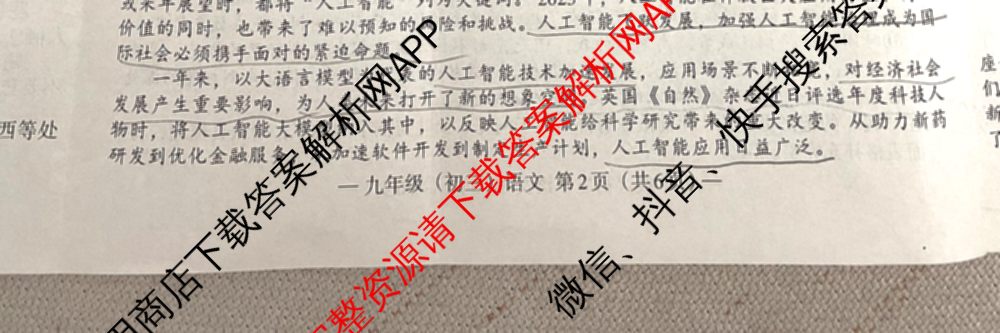 或来年展望时，都将“人工智能”列为关键词。2023年，人
价值的同时，也带来了难以预知的 险和挑战。人工智能 发展，加强人工智 理成为国
际社会必须携手面对的紧迫命题
一年来，以大语言模型 的人工智能技术加 展，应用场景不断 ，对经济社会
发展产生重要影响，为人 来打开了新的想象空 英国《自然》杂 日评选年度科技人
物时，将人工智能大模 人其中，以反映人 能给科学研究带来 重大改变。从助力新药
研发到优化金融服务 加速软件开发到制定生产计划，人工智能应用日益广泛。
—九年级（初三）语文 第2页（共6 —
西等处
座
们
新
了
用商店下载答案解析网APP
整资源请下载答案解析网APP
微信、抖音、快手搜索答案